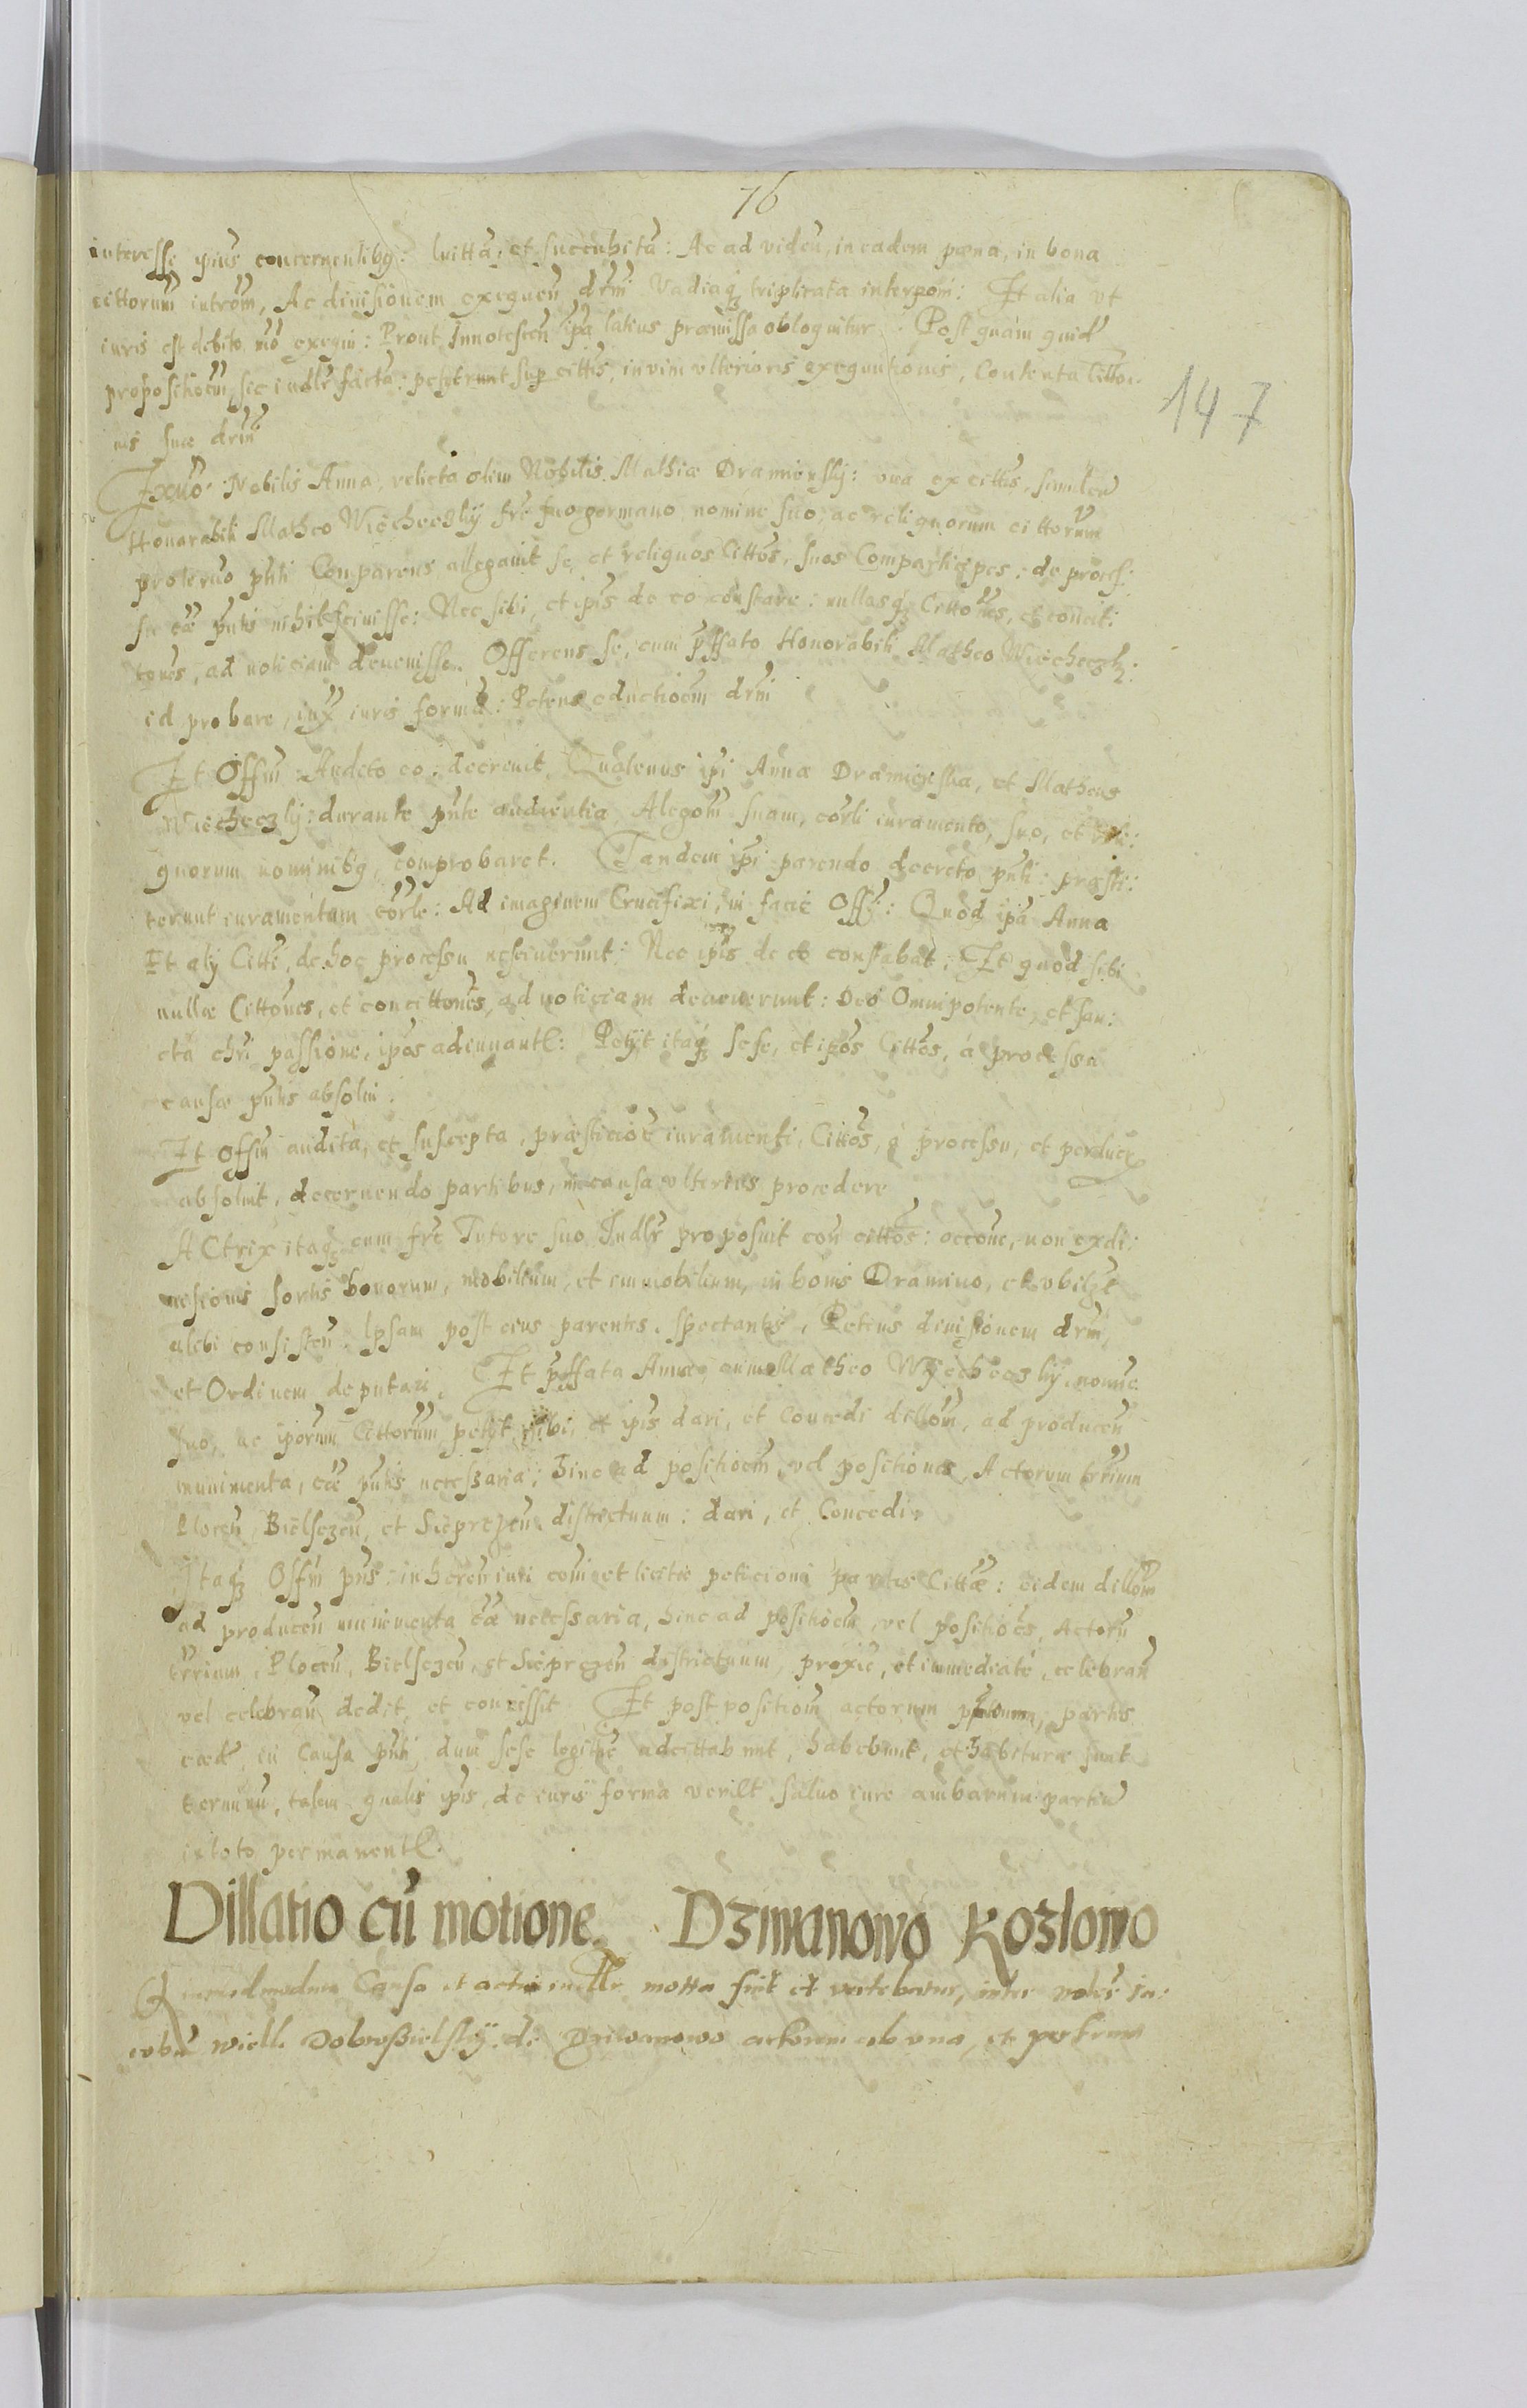 76
147
interesse ipius concernentibq: luitta: et succubita: Ac ad viden, in eadem pœna, in bona
cittorum introm, Ac divisionem exequen drm Vadiaqz triplicata interpom: Et alia vt
iuris est debito mo exequi: Prout Innotescen ipa latius præmissa obloquitur Post quam quid
propositioem, sic iudlr facta: petierunt sup cittis, in vim vlterioris exequutionis, Contenta Citto
nis suæ drm
Nobilis Anna, relicta olim Nobilis Mathiæ Dramiensky: vna ex cittis, simulcu
Honorabili Matheo Wiecheczky fre suo germano nomine suo, ac reliquorum cittorum
pnti Comparens allegavit se, et reliquos Cittos, suos Comparticipes: de proces:
su cæ pntis nihil scivisse: Nec sibi, et ipis de eo constare: nullasqz Cittones, et concit:
tones, ad noticiam devenisse. Offerens se, cum pffato Honorabili Matheo Wiecheczky:
id probare, iux iuris forma: Petens eductioem drni
Et Offm: decrevit Quatenus ipi Anna Dramienska, et Matheus
Wiecheczky: durante pnte audientia Alegom suam, corli iuramento, suo, et reli:
quorum nominibq, comprobaret. Tandem ipi parendo decreto pnti: præsti:
terunt iuramentum corle: Ad imaginem Crucifixi, in facie Offy: Quod ipa Anna
Et aly Citti, de hoc processu nesciverunt: Nec ipis de eo constabat: Et quod sibi
nullæ Cittones, et concittones, ad noticiam devenerunt: Deo Omnipotente, et san:
cta chri passione, ipos adiuvante: Petyt itaqz sese, et ipos Cittos, a processu
causæ pntis absolvi.
Et Offm audita, et suscepta, præsticioe iuramenti, Cittos, a processu, et
absolvit, decernendo partibus, in causa vlterius procedere
ACtrix itaqz cum fre Tutore suo Iudlr proposuit con cittos: occone, non exdi:
visionis sortis bonorum, mobilium, et immobilium, in bonis Dramino, et vbilzt
alibi consisten. Ipsam post eius parentes spectantis, Petens divisionem drni,
et Ordinem deputari. Et pffata Anna, cum Matheo Wyecheczky, nomine
suo, ac iporum Cittorum petyt sibi, et ipis dari, et Concedi dillom, ad producen
munimenta, cæ pntis necessaria; hinc ad positioem, vel positiones, Actorum trrium
Plocen, Bielsczen, et Sieprczen districtuum: dari, et Concedi.
Itaqz Offm pns: inheren iuri comi et licitæ peticioni partis Cittæ: eidem dillom
ad producen munimenta cæ necessaria, hinc ad positioem, vel positioes, Actoru
trrium, Plocen, Bielsczen, et Sieprczen districtuum, proxie, et immediate, celebran
vel celebran dedit, et concessit Et post positiom actorum partes
eæd, in Causa pnti, dum sese legitie adcittabunt, habebunt, et habituræ sunt
terminu, talem qualis ipis, de iuris forma venilt salvo iure ambarum partiu
in toto permanente.
Dillatio cu motione. Dzivvanowo Kozlowo
Quemadmodum Causa et actio motta fuit et vertebatur, inter nobes Ia:
cobu Wielk Dobrosielsky de Dziwanowo actorem ab vna, et